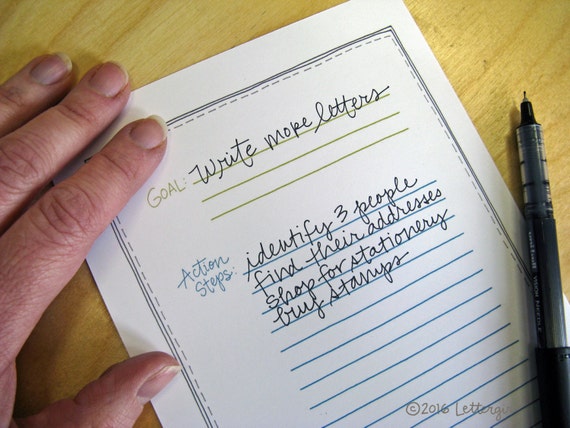 GOAL: Write more letters
Action Steps: identify 3 people
find their addresses
shop for stationery
buy stamps
©2016